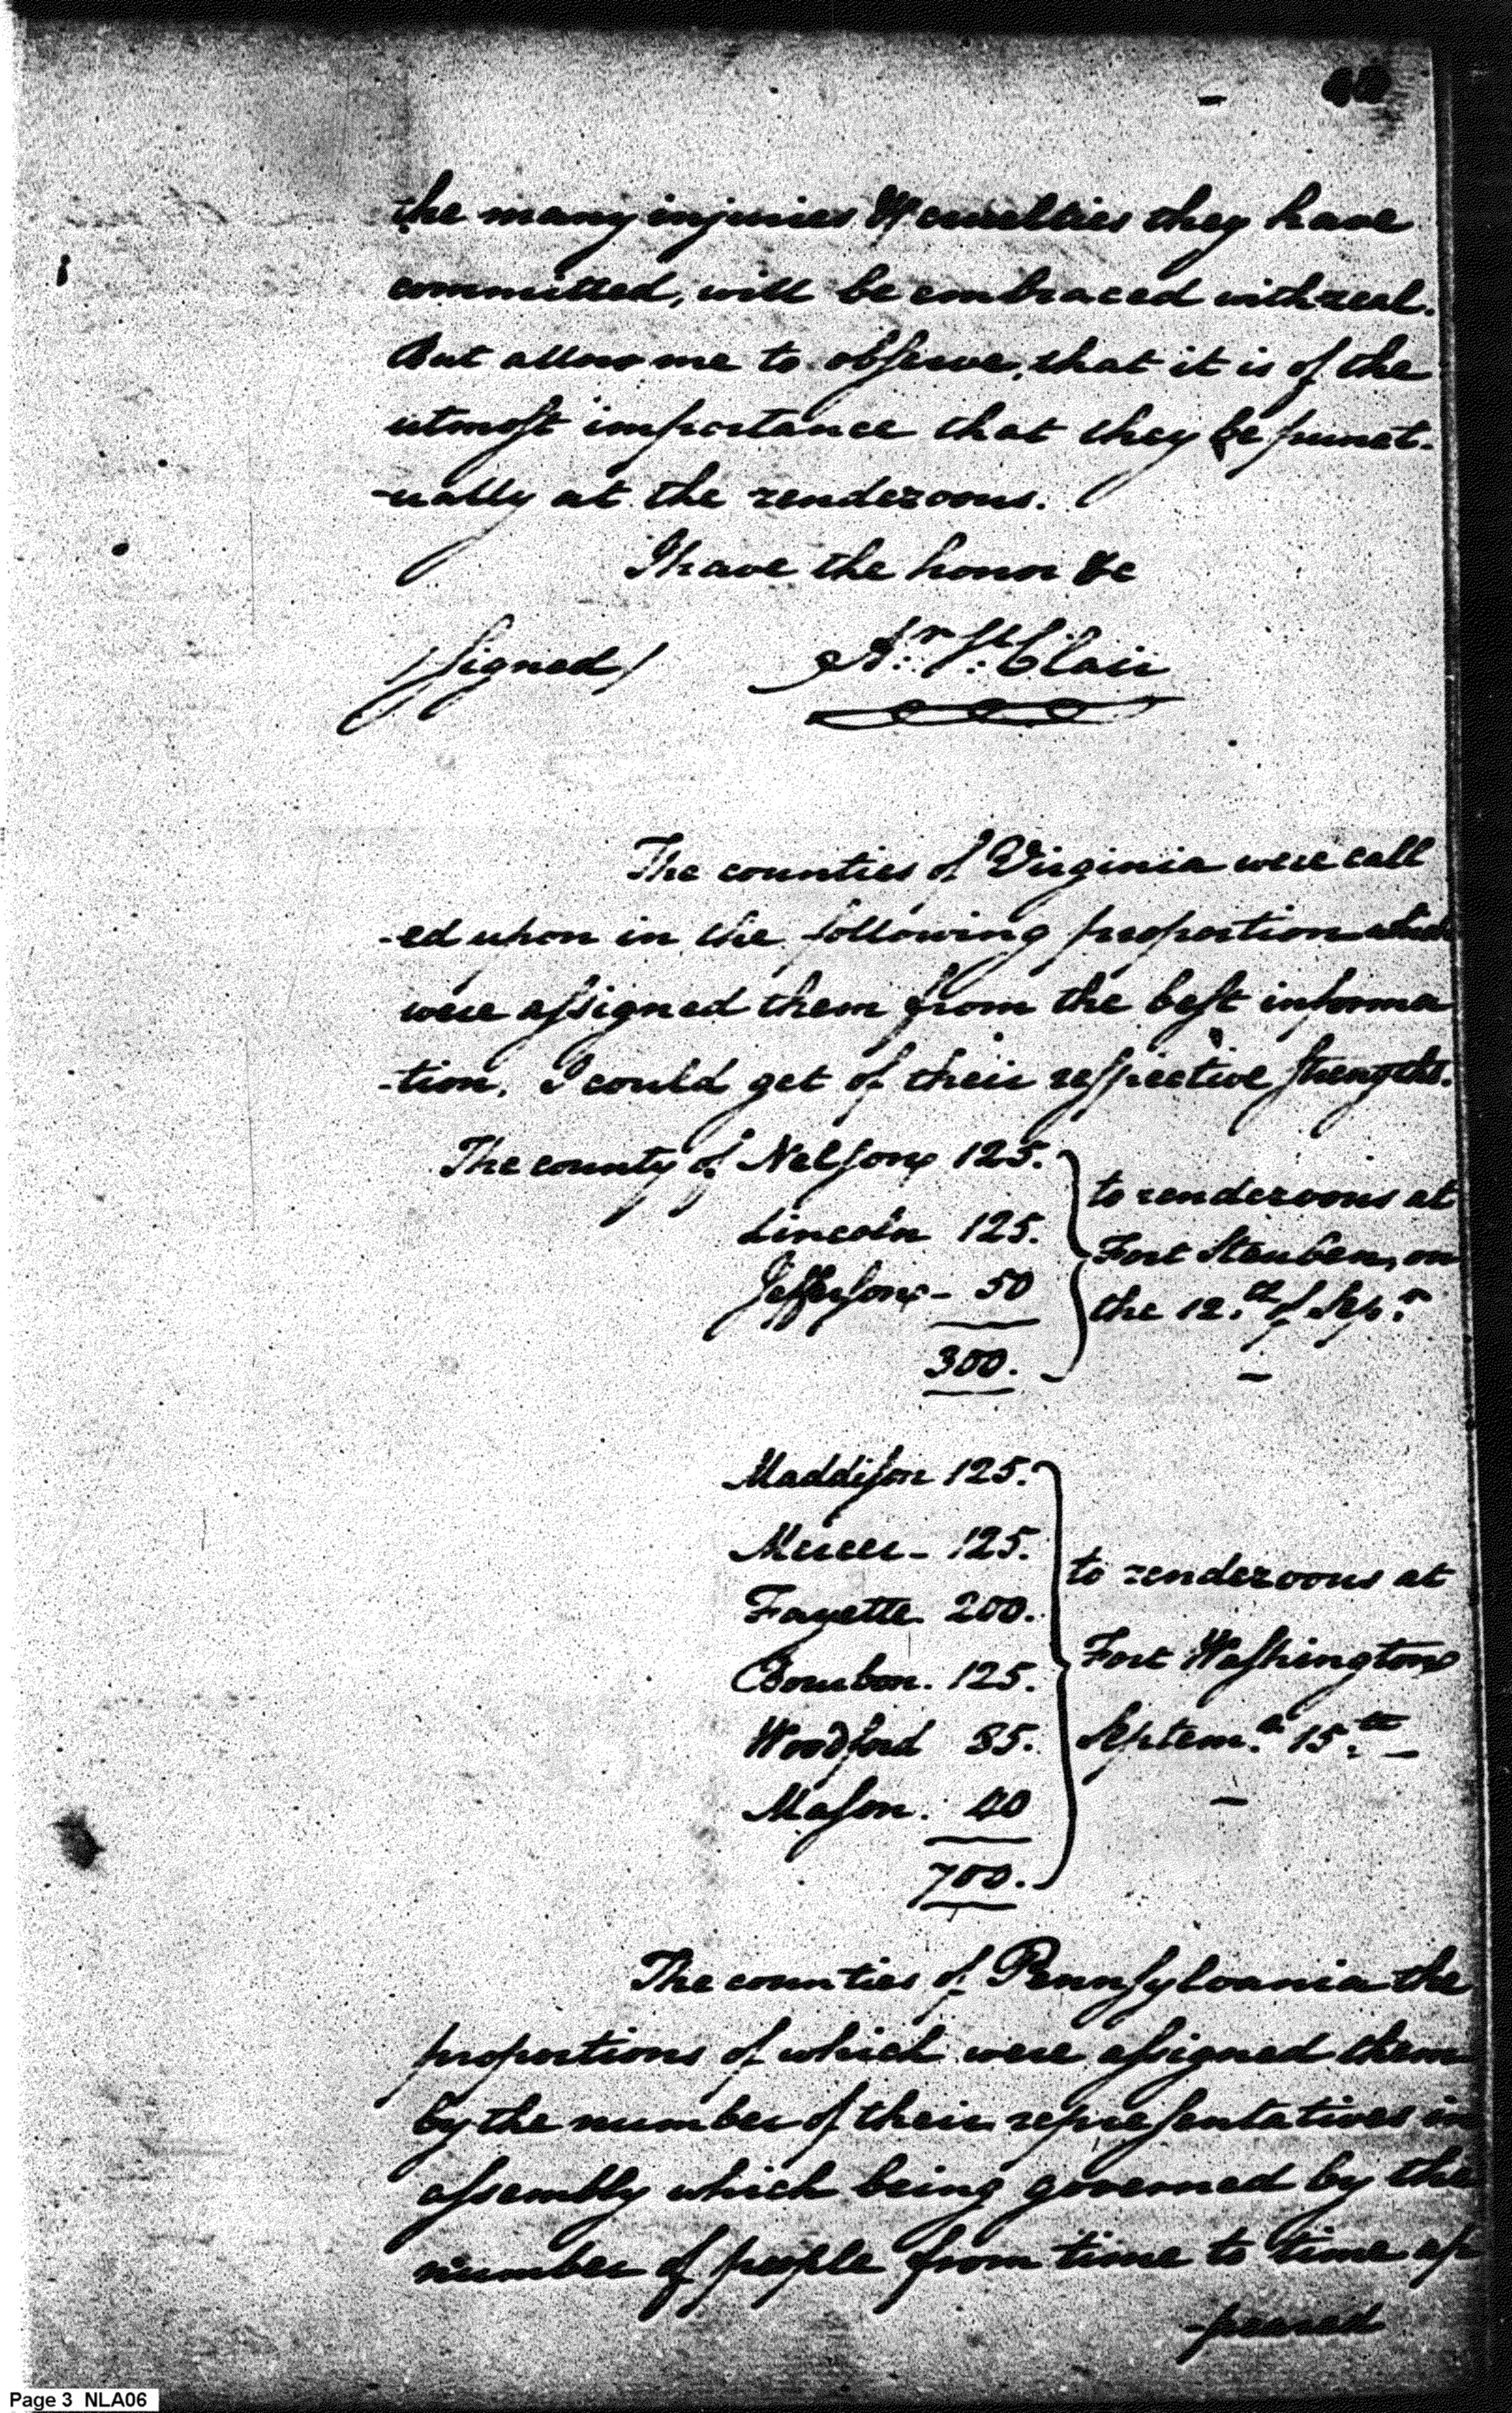 the many injuries & cruelties they have
committed, will be embraced with zeal.
But allow me to observe, that it is of the
utmost importance that they be punct-
-ually at the rendezvous.
I have the honor &c
/signed/ Ar. St. Clair
The counties of Virginia were call
-ed upon in the following proportion which
were assigned them from the best informa
-tion, I could get of their respective strengths.
The county of Nelson 125.
Lincoln 125.
Jefferson - 50
300.
to rendezvous at
Fort Steuben, on
the 12.th of Sep.r
Maddison 125.
Mercer - 125.
Fayette 200.
Bourbon. 125.
Woodford 85.
Mason. 40
700.
to rendezvous at
Fort Washington
Septem.r 15.th
The counties of Pennsylvania the
proportions of which were assigned them
by the number of their representatives in
assembly which being governed by the
number of people from time to time ap
-peared
Page 3 NLA06